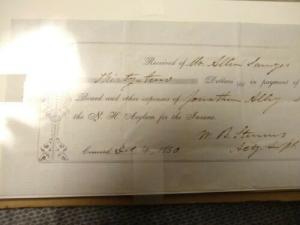 Received of Mr Allen Savage
Thirty two Dollars in payment of
Board and other expenses of Jonathan
the N. H. Asylum for the Insane.
W. B. Stevens
Concord 1850